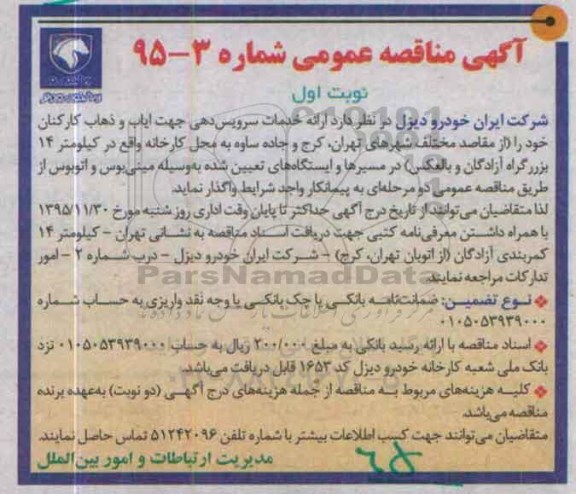 آگهی مناقصه عمومی شماره ۳-۹۵
نوبت اول
شرکت ایران خودرو دیزل در نظر دارد ارائه خدمات سرویس‌دهی جهت ایاب و ذهاب کارکنان
خود را (از مقاصد مختلف شهرهای تهران، کرج و جاده ساوه به محل کارخانه واقع در کیلومتر ۱۴
بزرگراه آزادگان و بالعکس) در مسیرها و ایستگاه‌های تعیین شده به‌وسیله مینی‌بوس و اتوبوس از
طریق مناقصه عمومی دو مرحله‌ای به پیمانکار واجد شرایط واگذار نماید.
لذا متقاضیان می‌توانند از تاریخ درج آگهی حداکثر تا پایان وقت اداری روز شنبه مورخ ۱۳۹۵/۱۱/۳۰
با همراه داشتن معرفی‌نامه کتبی جهت دریافت اسناد مناقصه به نشانی تهران - کیلومتر ۱۴
کمربندی آزادگان (از اتوبان تهران، کرج) - شرکت ایران خودرو دیزل - درب شماره ۲ - امور
تدارکات مراجعه نمایند.
ParsNamadData
نوع تضمین: ضمانت‌نامه بانکی یا چک بانکی یا وجه نقد واریزی به حساب شماره
۰۱۰۵۰۵۳۹۳۹۰۰۰
اسناد مناقصه با ارائه رسید بانکی به مبلغ ۲۰۰/۰۰۰ ریال به حساب ۰۱۰۵۰۵۳۹۳۹۰۰۰ نزد
بانک ملی شعبه کارخانه خودرو دیزل کد ۱۶۵۳ قابل دریافت می‌باشد.
کلیه هزینه‌های مربوط به مناقصه از جمله هزینه‌های درج آگهی (دو نوبت) به‌عهده برنده
مناقصه می‌باشد.
متقاضیان می‌توانند جهت کسب اطلاعات بیشتر با شماره تلفن ۵۱۲۴۲۰۹۶ تماس حاصل نمایند.
مدیریت ارتباطات و امور بین‌الملل